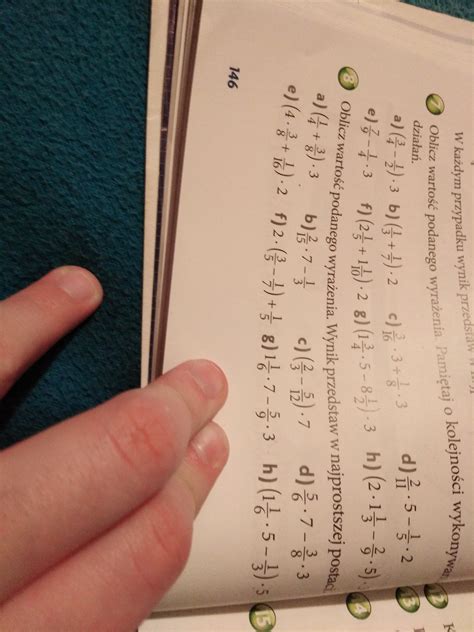 W każdym przypadku wynik przedstaw
7 Oblicz wartość podanego wyrażenia. Pamiętaj o kolejności wykonywan
działań.
a) (3/4 − 1/2) · 3 b) (1/3 + 1/7) · 2 c) 3/16 · 3 + 1/8 · 3 d) 2/11 · 5 − 1/5 · 2
e) 7/9 − 1/4 · 3 f) (2 1/5 + 1 1/10) · 2 g) (1 3/4 · 5 − 8 1/2) · 3 h) (2 · 1 1/3 − 2/9 · 5) ·
8 Oblicz wartość podanego wyrażenia. Wynik przedstaw w najprostszej postaci
a) (1/4 + 3/8) · 3 b) 2/15 · 7 − 1/3 c) (2/3 − 5/12) · 7 d) 5/6 · 7 − 3/8 · 3
e) (4 · 3/8 + 1/16) · 2 f) 2 · (3/5 − 1/7) + 1/5 g) 1 1/6 · 7 − 5/9 · 3 h) (1 1/6 · 5 − 1/3) · 5
146
12 K
13
14
15